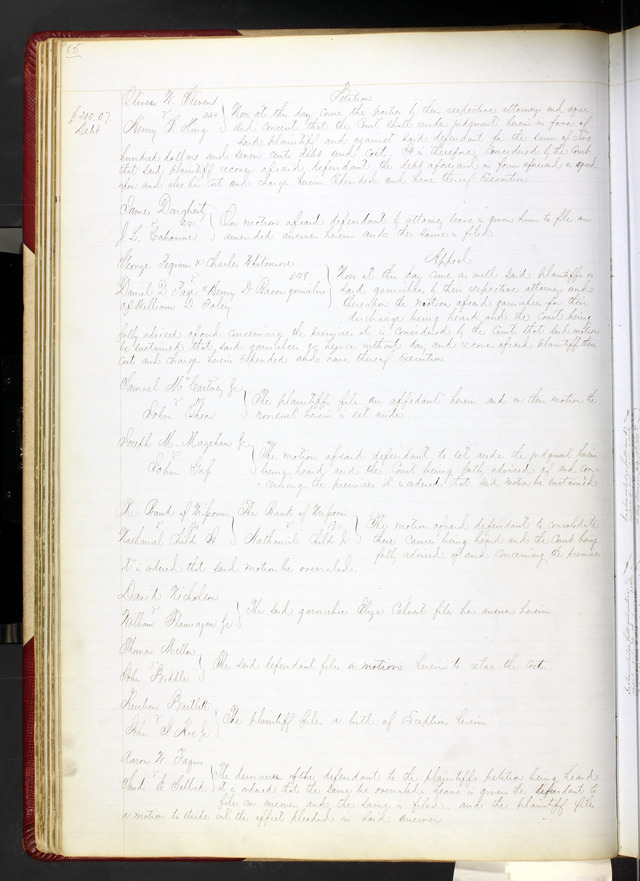 Petition
Oliver W. Stevens
vs 250
Henry N. King
$200.07
Debt
Now at this day come the parties by their respective attorneys and agree
and consent that the Court shall render judgment herein in favor of
said plaintiff and against said defendant for the sum of two
hundred dollars and seven cents debt and cost. It is therefore considered by the Court
that said plaintiff recover of said defendant the debt aforesaid in form aforesaid as agreed
upon and also his cost and charges herein expended and have thereof execution
James Dougherty
vs
J. L. Cabanne
On motion aforesaid defendant by attorney leave is given him to file an
amended answer herein and the same is filed
George Pegram & Charles Whitemore Appeal
vs 348
Daniel D. Page & Henry D. Bacon garnishees
of William D. Foley
Now at this day come as well said plaintiffs as
said garnishees by their respective attorneys and
thereupon the motion of said garnishees for their
discharge being heard and the Court being
fully advised of and concerning the premises it is considered by the Court that said motion
be sustained that said garnishees go hence without day and recover of said plaintiff their
cost and charges herein expended and have thereof execution
Samuel McCartney Jr
vs
John Shea
The plaintiffs file an affidavit herein and on their motion the
nonsuit herein is set aside
Joseph M. Magehan Jr
vs
John
The motion of said defendant to set aside the judgment herein
being heard and the Court being fully advised of and con-
cerning the premises it is ordered that said motion be sustained
The Bank of Missouri The Bank of Missouri
vs vs 130
Nathaniel Childs Jr Nathaniel Childs Jr
The motion of said defendant to consolidate
these causes being heard and the Court being
fully advised of and concerning the premises
it is ordered that said motion be overruled
David Nicholson
vs
William Flannagan Jr
The said garnishee Eliza Calvert files her answer herein
Thomas Mellon
vs
John Biddle
The said defendant files a motion herein to retax the costs
Reuben Bartlett
vs
John J. Roe Jr
The plaintiff files a bill of Exceptions herein
Aaron W. Fagin
vs
E. Sellick
The demurrer of the defendant to the plaintiffs petition being heard
it is ordered that the same be overruled leave is given the defendant to
file an answer and the same is filed and the plaintiff files
a motion to strike out the offset pleaded in said answer